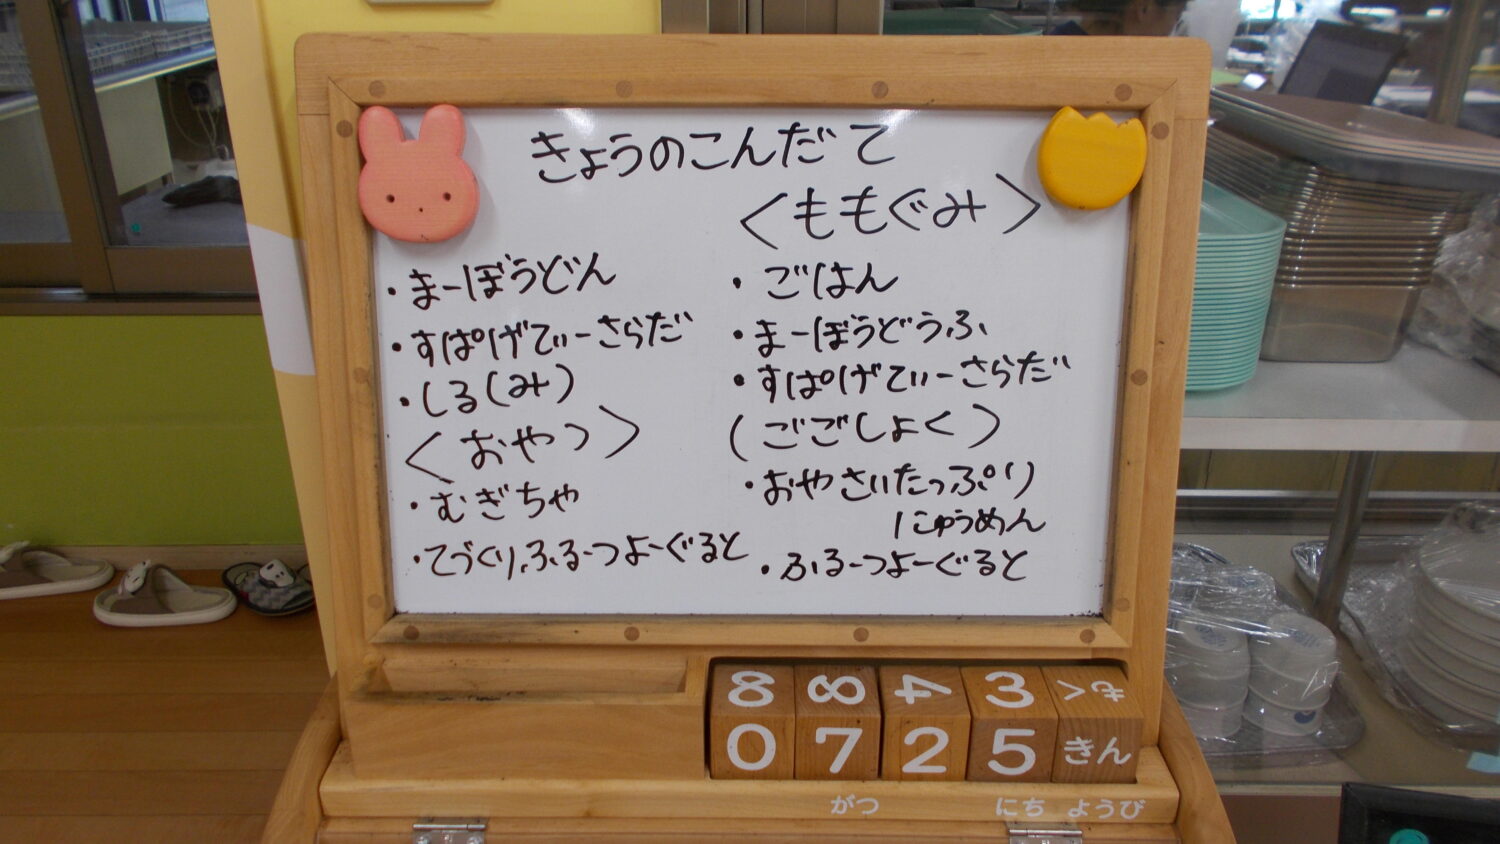 きょうのこんだて
・まーぼうどん
・すぱげてぃーさらだ
・しる(み)
<おやつ>
・むぎちゃ
・てづくりふるーつよーぐると
<ももぐみ>
・ごはん
・まーぼうどうふ
・すぱげてぃーさらだ
(ごごしょく)
・おやさいたっぷり
にゅうめん
・ふるーつよーぐると
8 8 4 3 もく
0 7 2 5 きん
がつ にち ようび